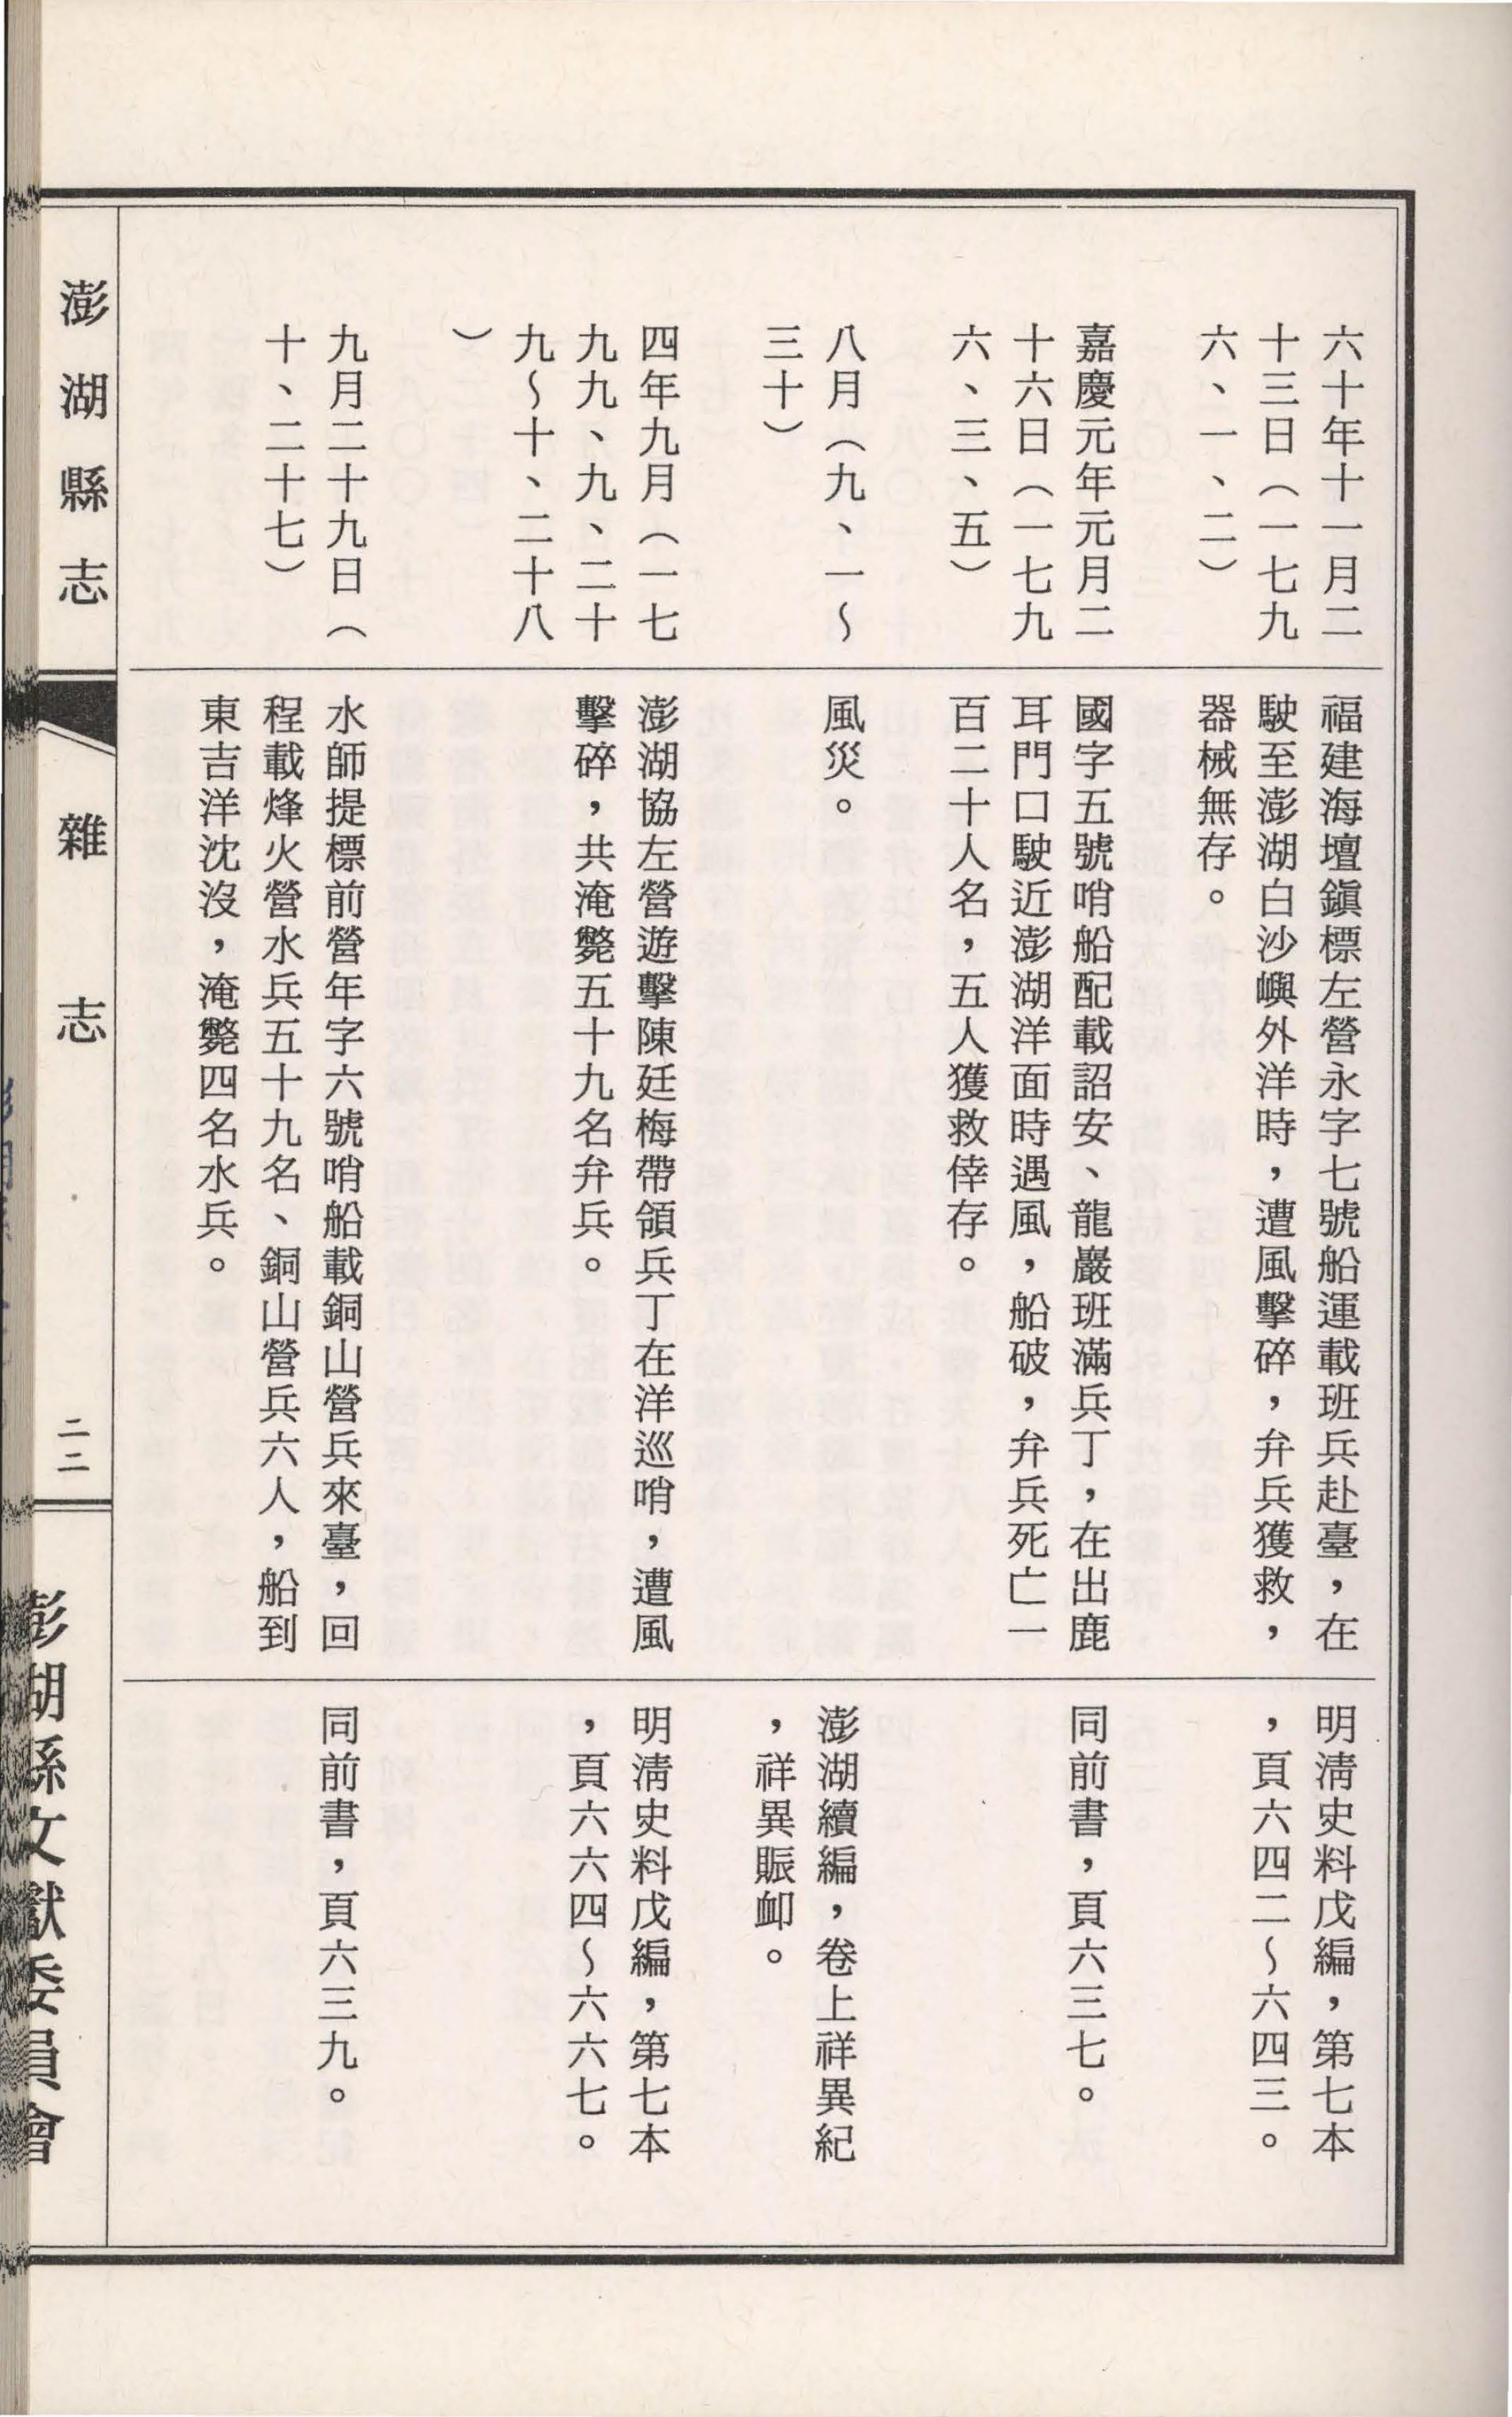 六十年十一月二
十三日（一七九
六、一、二）
福建海壇鎭標左營永字七號船運載班兵赴臺，在
駛至澎湖白沙嶼外洋時，遭風擊碎，弁兵獲救，
器械無存。
明淸史料戊編，第七本
，頁六四二～六四三。
嘉慶元年元月二
十六日（一七九
六、三、五）
國字五號哨船配載詔安、龍巖班滿兵丁，在出鹿
耳門口駛近澎湖洋面時遇風，船破，弁兵死亡一
百二十人名，五人獲救倖存。
同前書，頁六三七。
八月（九、一～
三十）
風災。
澎湖續編，卷上祥異紀
，祥異賑卹。
四年九月（一七
九九、九、二十
九～十、二十八
）
澎湖協左營遊擊陳廷梅帶領兵丁在洋巡哨，遭風
擊碎，共淹斃五十九名弁兵。
明淸史料戊編，第七本
，頁六六四～六六七。
九月二十九日（
十、二十七）
水師提標前營年字六號哨船載銅山營兵來臺，回
程載烽火營水兵五十九名、銅山營兵六人，船到
東吉洋沈沒，淹斃四名水兵。
同前書，頁六三九。
澎湖縣志
雜志
二二
澎湖縣文獻委員會